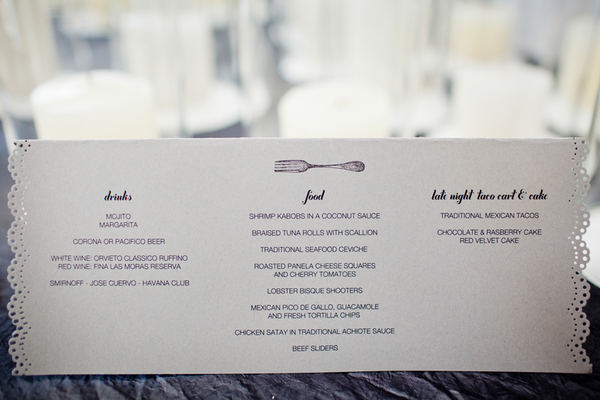 drinks
MOJITO
MARGARITA
CORONA OR PACIFICO BEER
WHITE WINE: ORVIETO CLASSICO RUFFINO
RED WINE: FINA LAS MORAS RESERVA
SMIRNOFF - JOSE CUERVO - HAVANA CLUB
food
SHRIMP KABOBS IN A COCONUT SAUCE
BRAISED TUNA ROLLS WITH SCALLION
TRADITIONAL SEAFOOD CEVICHE
ROASTED PANELA CHEESE SQUARES
AND CHERRY TOMATOES
LOBSTER BISQUE SHOOTERS
MEXICAN PICO DE GALLO, GUACAMOLE
AND FRESH TORTILLA CHIPS
CHICKEN SATAY IN TRADITIONAL ACHIOTE SAUCE
BEEF SLIDERS
late night taco cart & cake
TRADITIONAL MEXICAN TACOS
CHOCOLATE & RASBERRY CAKE
RED VELVET CAKE